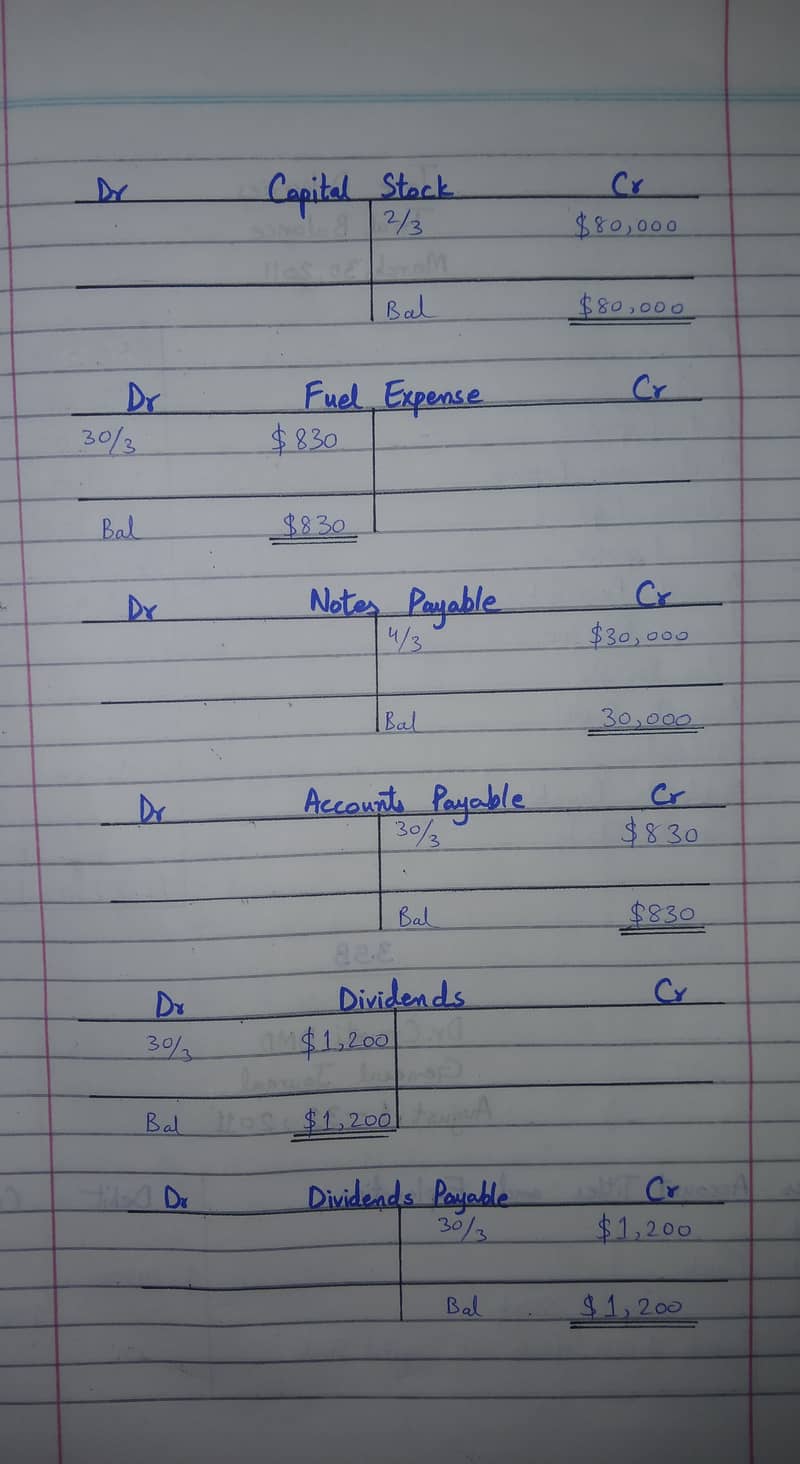 Dr Capital Stock Cr
2/3 $80,000
Bal $80,000
Dr Fuel Expense Cr
30/3 $830
Bal $830
Dr Notes Payable Cr
4/3 $30,000
Bal 30,000
Dr Accounts Payable Cr
30/3 $830
Bal $830
Dr Dividends Cr
30/3 $1,200
Bal $1,200
Dr Dividends Payable Cr
30/3 $1,200
Bal $1,200